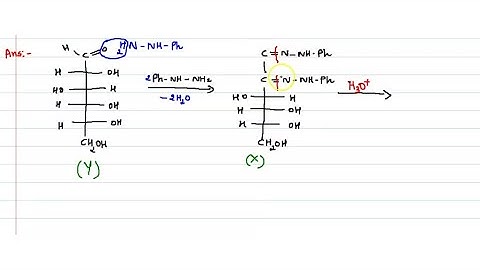 Ans:-
H O H2N-NH-Ph
H OH
HO H
H OH
H OH
CH2OH
(Y)
2Ph-NH-NH2
-2H2O
C=N-NH-Ph
C=N-NH-Ph
HO H
H OH
H OH
CH2OH
(X)
H3O+